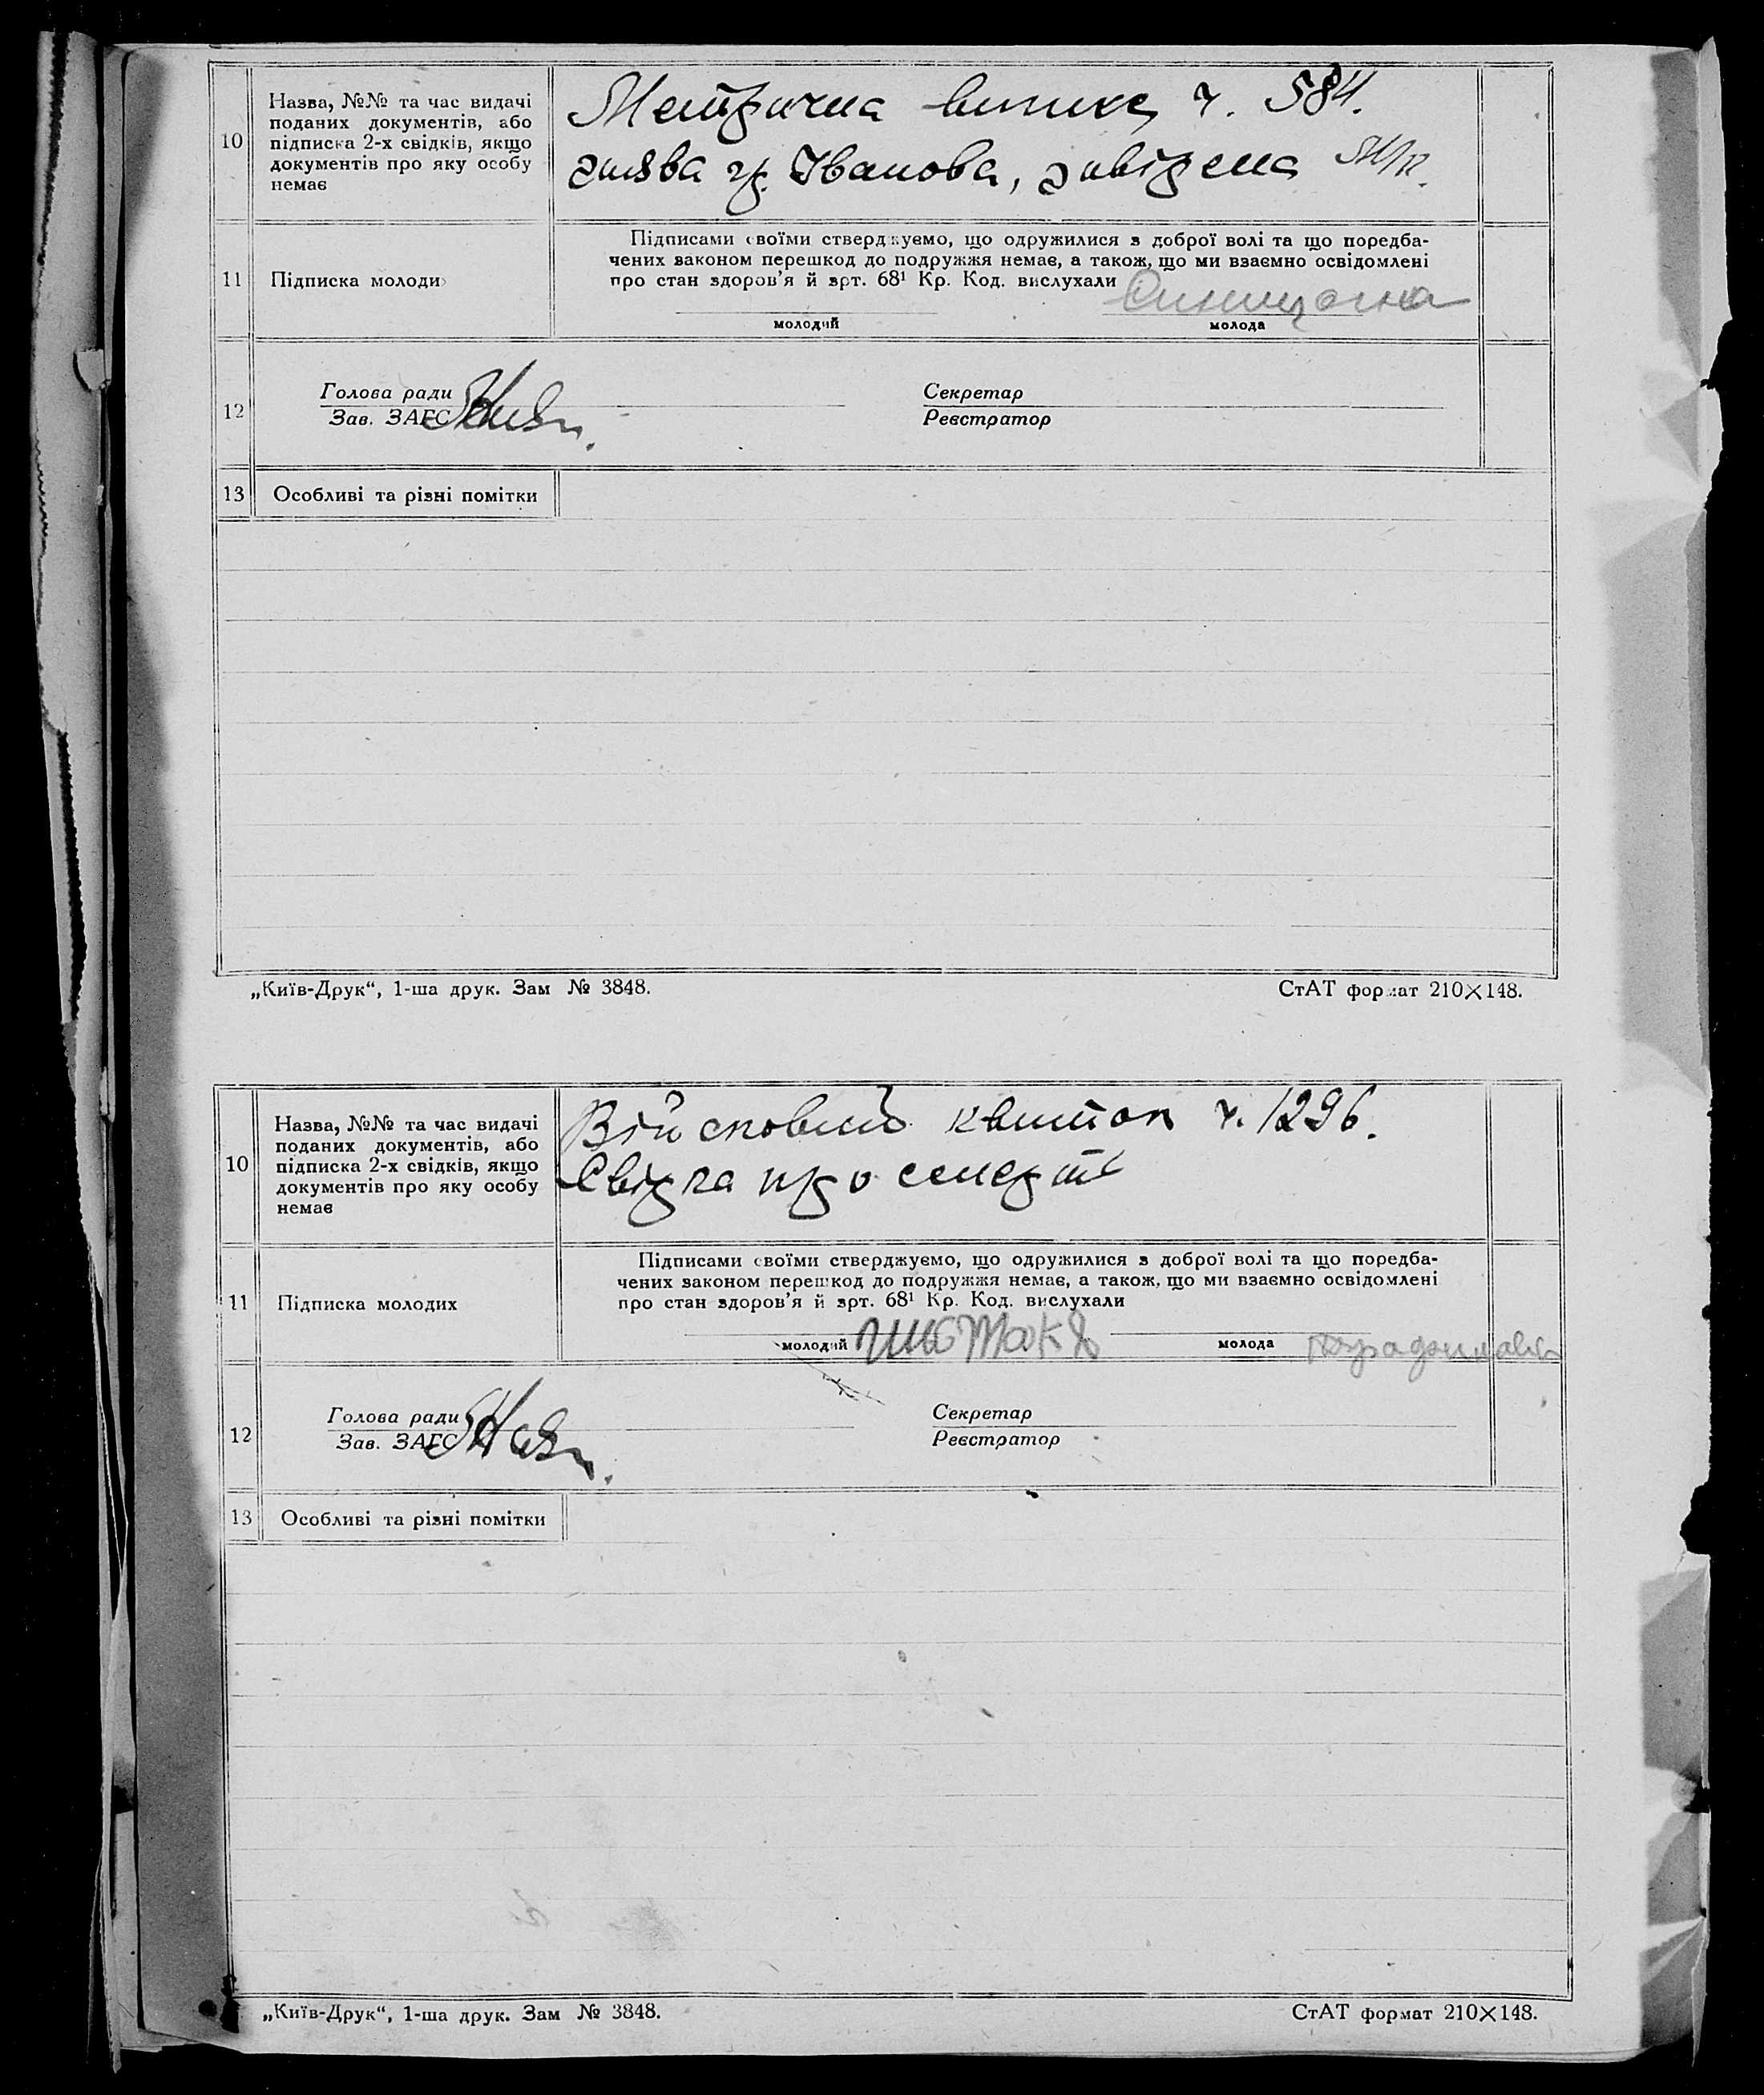 10
Назва, №№ та час видачі
поданих документів, або
підписка 2-х свідків, якщо
документів про яку особу
немає
Метрична випись ч. 584.
заява гр. Іванова, завірена
11
Підписка молоди
Підписами своїми стверджуємо, що одружилися з доброї волі та що передба-
чених законом перешкод до подружжя немає, а також, що ми взаємно освідомлені
про стан здоров'я й арт. 68¹ Кр. Код. вислухали
молодий
молода
12
Голова ради
Зав. ЗАГС
Секретар
Реєстратор
13
Особливі та різні помітки
„Київ-Друк“, 1-ша друк. Зам № 3848.
СтАТ формат 210×148.
10
Назва, №№ та час видачі
поданих документів, або
підписка 2-х свідків, якщо
документів про яку особу
немає
Військовий квиток ч. 1296.
Свідка про смерть
11
Підписка молодих
Підписами своїми стверджуємо, що одружилися з доброї волі та що поредба-
чених законом перешкод до подружжя немає, а також, що ми взаємно освідомлені
про стан здоров'я й арт. 68¹ Кр. Код. вислухали
молодий
молода
12
Голова ради
Зав. ЗАГС
Секретар
Реєстратор
13
Особливі та різні помітки
„Київ-Друк“, 1-ша друк. Зам № 3848.
СтАТ формат 210×148.